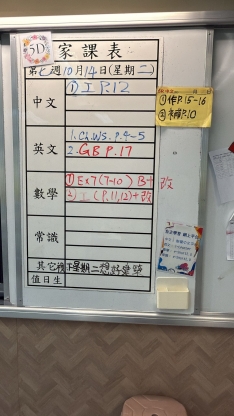 5D
家課表
第七週10月14日(星期二)
中文
① 工 P.12
① 作P.15-16
② 補P.10
英文
1. G.W.S. P.4-5
2. GB P.17
數學
① Ex7(7-10) B+改
② 工 (P.11,12)+改
常識
其它
下星期二想好建築
值日生